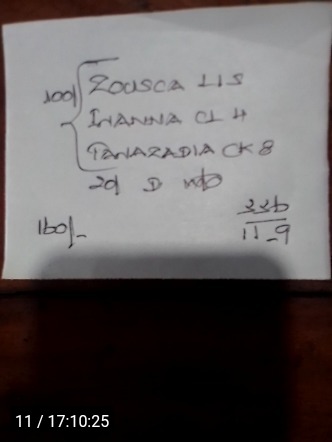 100/ ZOUSCA 11S
INANNA CL 4
TANAZADIA CK 8
20/ D
160/-
226
11-9
11 / 17:10:25